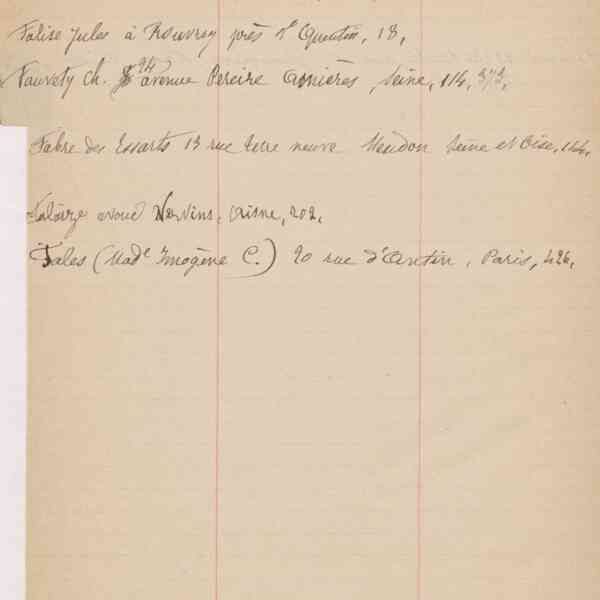 Falise Jules à Rouvroy près St Quentin, 18,
Fauvety Ch. 24 avenue Pereire Asnières, Seine, 114, 373,
Fabre des Essarts 13 rue terre neuve Meudon Seine et Oise, 144,
Falaize avoué Vervins, Aisne, 202,
Fales (Made Imogène C.) 20 rue d'Antin, Paris, 426,